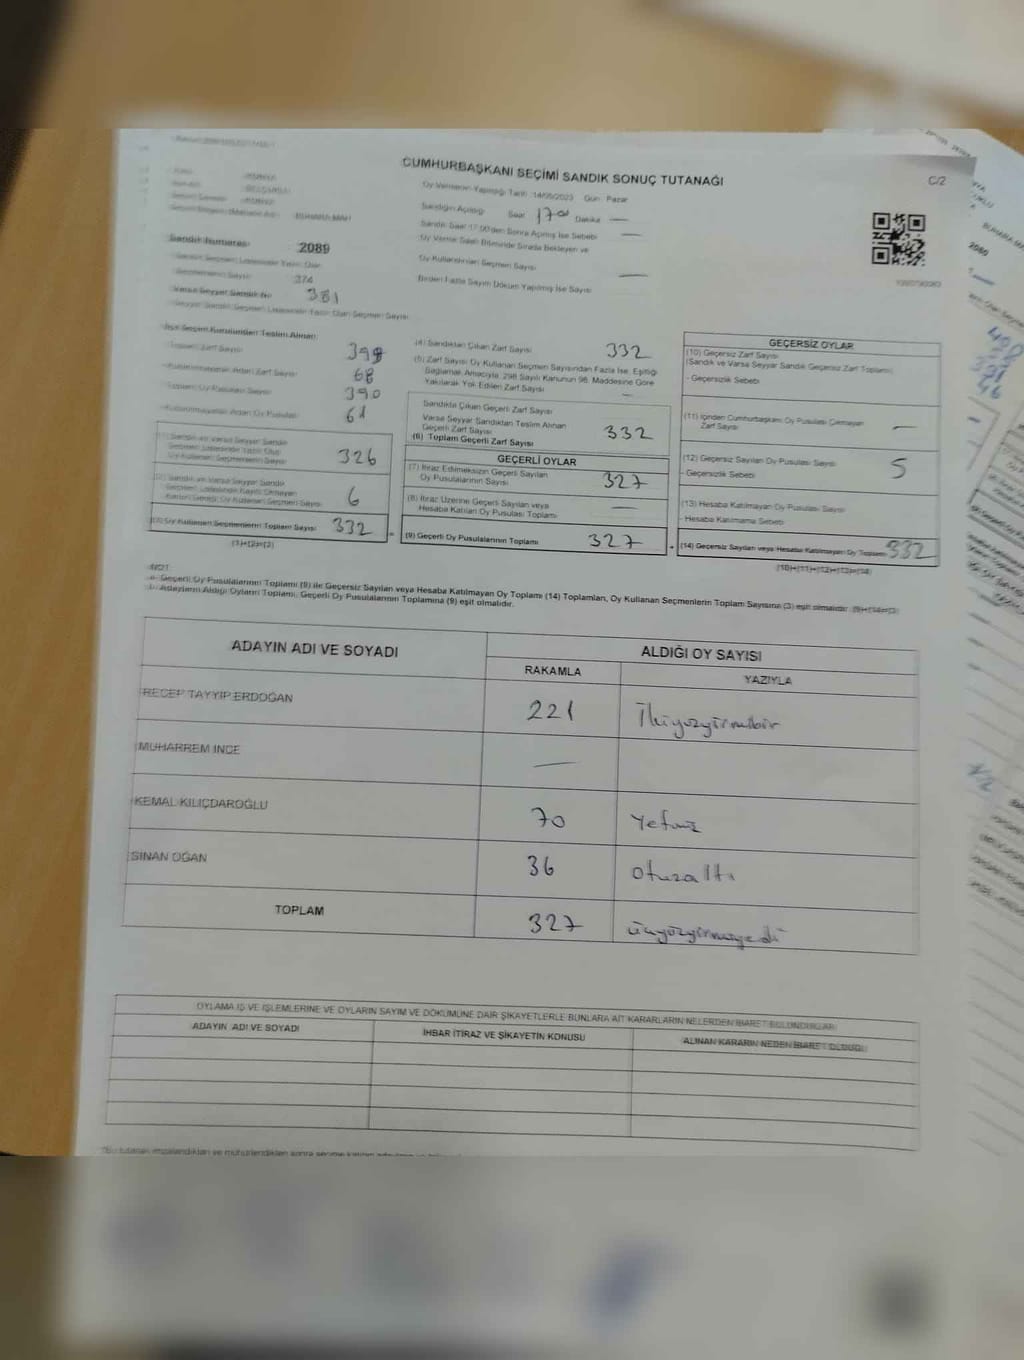 CUMHURBAŞKANI SEÇİMİ SANDIK SONUÇ TUTANAĞI
C/2
Oy Vermenin Yapıldığı Tarih :14/05/2023 Gün : Pazar
Sandığın Açıldığı Saat 17 00 Dakika —
Sandık Saat 17.00'den Sonra Açılmış İse Sebebi —
Oy Verme Saati Bitiminde Sırada Bekleyen ve
Oy Kullandırılan Seçmen Sayısı
Birden Fazla Sayım Döküm Yapılmış İse Sayısı —
BUHARA MAH
Sandık Numarası 2089
374
Varsa Seyyar Sandık No 381
İlçe Seçim Kurulundan Teslim Alınan
Toplam Zarf Sayısı
68
Toplam Oy Pusulası Sayısı 390
61
326
6
(3) Oy Kullanan Seçmenlerin Toplam Sayısı 332
(1)+(2)=(3)
(4) Sandıktan Çıkan Zarf Sayısı 332
(5) Zarf Sayısı Oy Kullanan Seçmen Sayısından Fazla İse, Eşitliği
Sağlamak Amacıyla, 298 Sayılı Kanunun 98. Maddesine Göre
Yakılarak Yok Edilen Zarf Sayısı —
Sandıkta Çıkan Geçerli Zarf Sayısı
Varsa Seyyar Sandıktan Teslim Alınan
Geçerli Zarf Sayısı
(6) Toplam Geçerli Zarf Sayısı 332
GEÇERLİ OYLAR
(7) İtiraz Edilmeksizin Geçerli Sayılan
Oy Pusulalarının Sayısı 327
(8) İtiraz Üzerine Geçerli Sayılan veya
Hesaba Katılan Oy Pusulası Toplamı —
(9) Geçerli Oy Pusulalarının Toplamı 327
GEÇERSİZ OYLAR
(10) Geçersiz Zarf Sayısı
(Sandık ve Varsa Seyyar Sandık Geçersiz Zarf Toplamı)
- Geçersizlik Sebebi
(11) İçinden Cumhurbaşkanı Oy Pusulası Çıkmayan
Zarf Sayısı —
(12) Geçersiz Sayılan Oy Pusulası Sayısı 5
- Geçersizlik Sebebi
(13) Hesaba Katılmayan Oy Pusulası Sayısı
- Hesaba Katılmama Sebebi
(14) Geçersiz Sayılan veya Hesaba Katılmayan Oy Toplamı 332
(10)+(11)+(12)+(13)=(14)
NOT:
a- Geçerli Oy Pusulalarının Toplamı (9) ile Geçersiz Sayılan veya Hesaba Katılmayan Oy Toplamı (14) Toplamları, Oy Kullanan Seçmenlerin Toplam Sayısına (3) eşit olmalıdır. (9)+(14)=(3)
b- Adayların Aldığı Oyların Toplamı, Geçerli Oy Pusulalarının Toplamına (9) eşit olmalıdır.
ADAYIN ADI VE SOYADI
ALDIĞI OY SAYISI
RAKAMLA YAZIYLA
RECEP TAYYİP ERDOĞAN 221 İkiyüzyirmibir
MUHARREM İNCE —
KEMAL KILIÇDAROĞLU 70 Yetmiş
SİNAN OĞAN 36 Otuzaltı
TOPLAM 327 üçyüzyirmiyedi
OYLAMA İŞ VE İŞLEMLERİNE VE OYLARIN SAYIM VE DÖKÜMÜNE DAİR ŞİKAYETLERLE BUNLARA AİT KARARLARIN NELERDEN İBARET BULUNDUKLARI
ADAYIN ADI VE SOYADI İHBAR İTİRAZ VE ŞİKAYETİN KONUSU ALINAN KARARIN NEDEN İBARET OLDUĞU